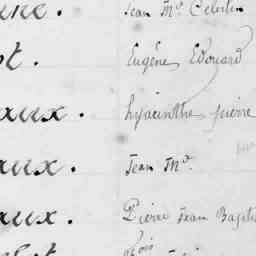 une. Jean Mie Celestin
ot. Eugêne Edouard
aux. hyacinthe pierre
aux. Jean Mie
aux. Pierre Jean Baptis